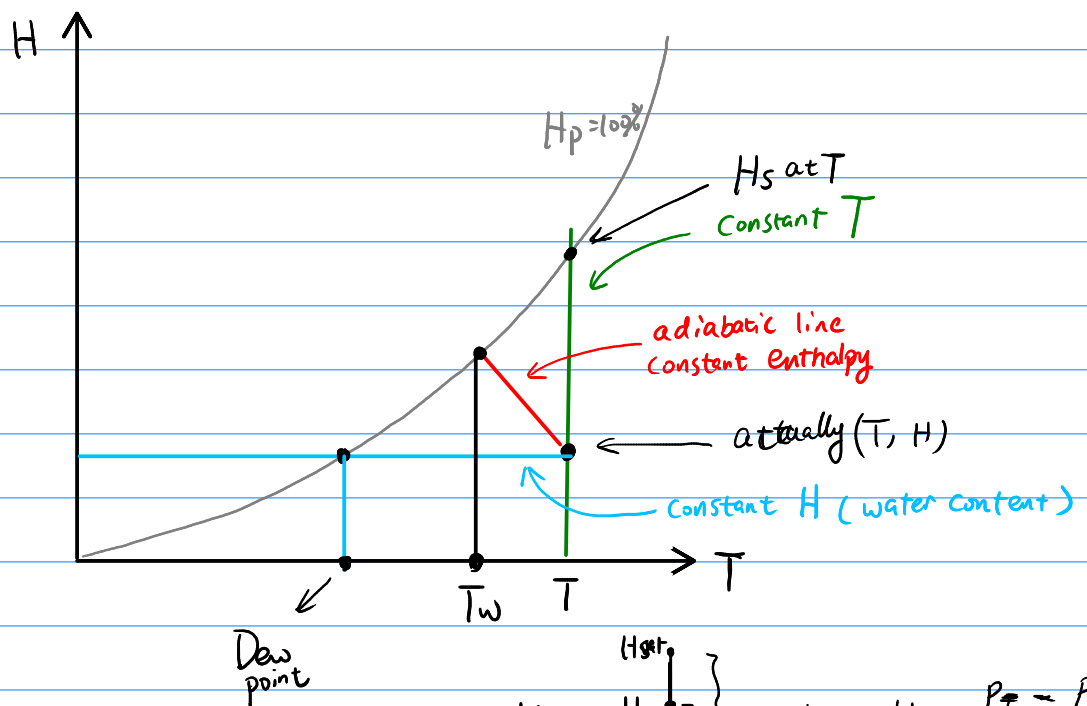 H
Hp=100%
Hs at T
Constant T
adiabatic line
constant enthalpy
actually (T, H)
constant H (water content)
T
Tw
T
Dew
point
Hsat
H